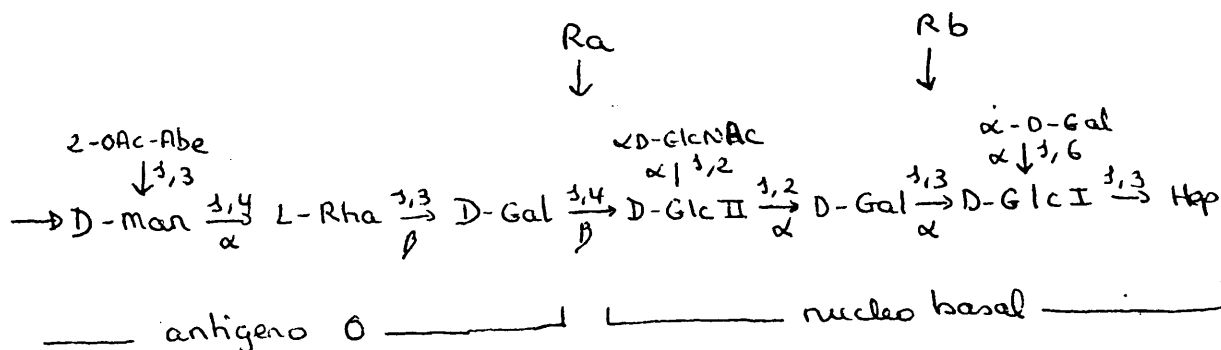 Ra Rb
↓ ↓
2-OAc-Abe αD-GlcNAc α-D-Gal
↓1,3 α| 1,2 α ↓1,6
→ D-Man 1,4→α L-Rha 1,3→β D-Gal 1,4→β D-Glc II 1,2→α D-Gal 1,3→α D-Glc I 1,3→ Hep
antígeno O nucleo basal